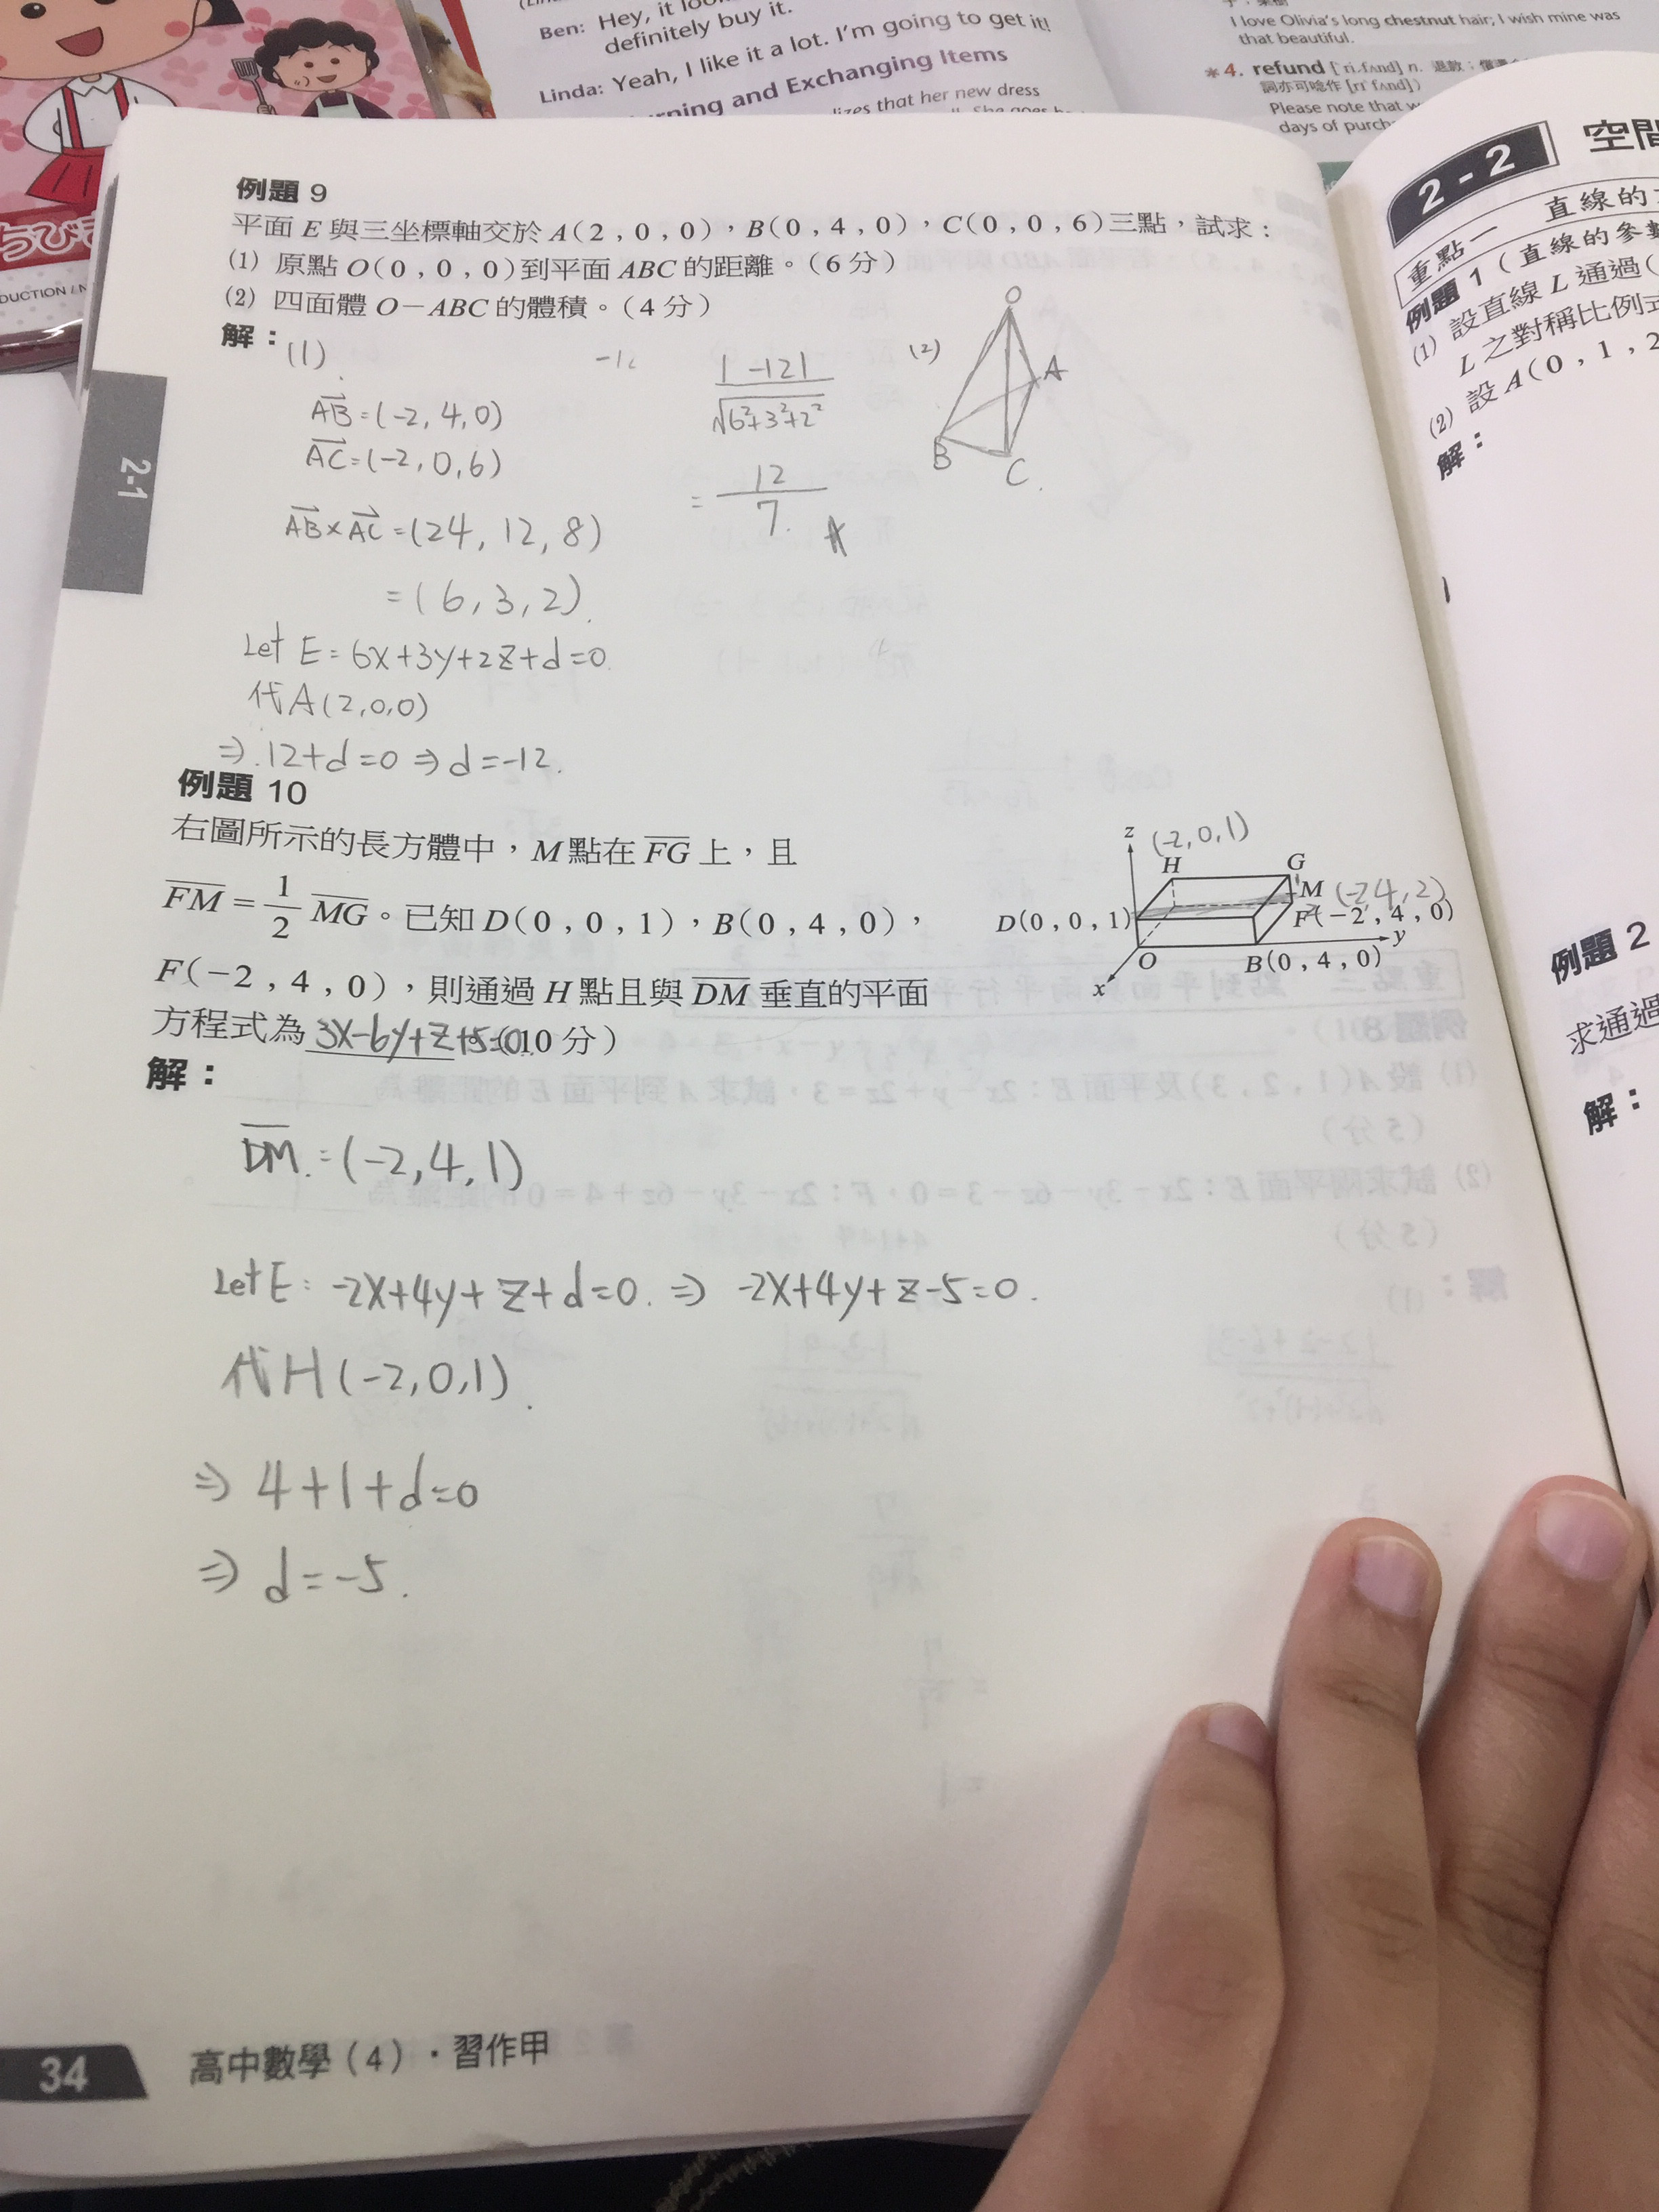 Ben: Hey, it
definitely buy it.
Linda: Yeah, I like it a lot. I'm going to get it!
and Exchanging Items
that her new dress
I love Olivia's long chestnut hair; I wish mine was
that beautiful.
*4. refund [ˋri.fʌnd] n. 退款
詞亦可唸作 [rɪˋfʌnd])
Please note that
days of
例題 9
平面 E 與三坐標軸交於 A(2,0,0),B(0,4,0),C(0,0,6)三點,試求:
(1) 原點 O(0,0,0)到平面 ABC 的距離。(6 分)
(2) 四面體 O-ABC 的體積。(4 分)
解:
(1)
AB=(-2,4,0)
AC=(-2,0,6)
AB×AC=(24,12,8)
=(6,3,2)
Let E=6x+3y+2z+d=0
代A(2,0,0)
⇒12+d=0⇒d=-12.
|-12|
√6²+3²+2²
= 12
7
(2)
O
A
B
C
2-1
例題 10
右圖所示的長方體中,M 點在 FG 上,且
FM = 1/2 MG。已知 D(0,0,1),B(0,4,0),
F(-2,4,0),則通過 H 點且與 DM 垂直的平面
方程式為 3x-6y+z+5=0 (10 分)
z (-2,0,1)
H G
M (-2,4,2)
D(0,0,1) F(-2,4,0)
y
O B(0,4,0)
x
解:
DM=(-2,4,1)
Let E: -2x+4y+z+d=0. ⇒ -2x+4y+z-5=0.
代H(-2,0,1).
⇒ 4+1+d=0
⇒ d=-5.
34 高中數學(4)・習作甲
2-2 空間
重點一 直線的
例題 1(直線的參數
(1) 設直線 L 通過(
L 之對稱比例式
(2) 設 A(0,1,2
解:
例題 2
求通過
解: